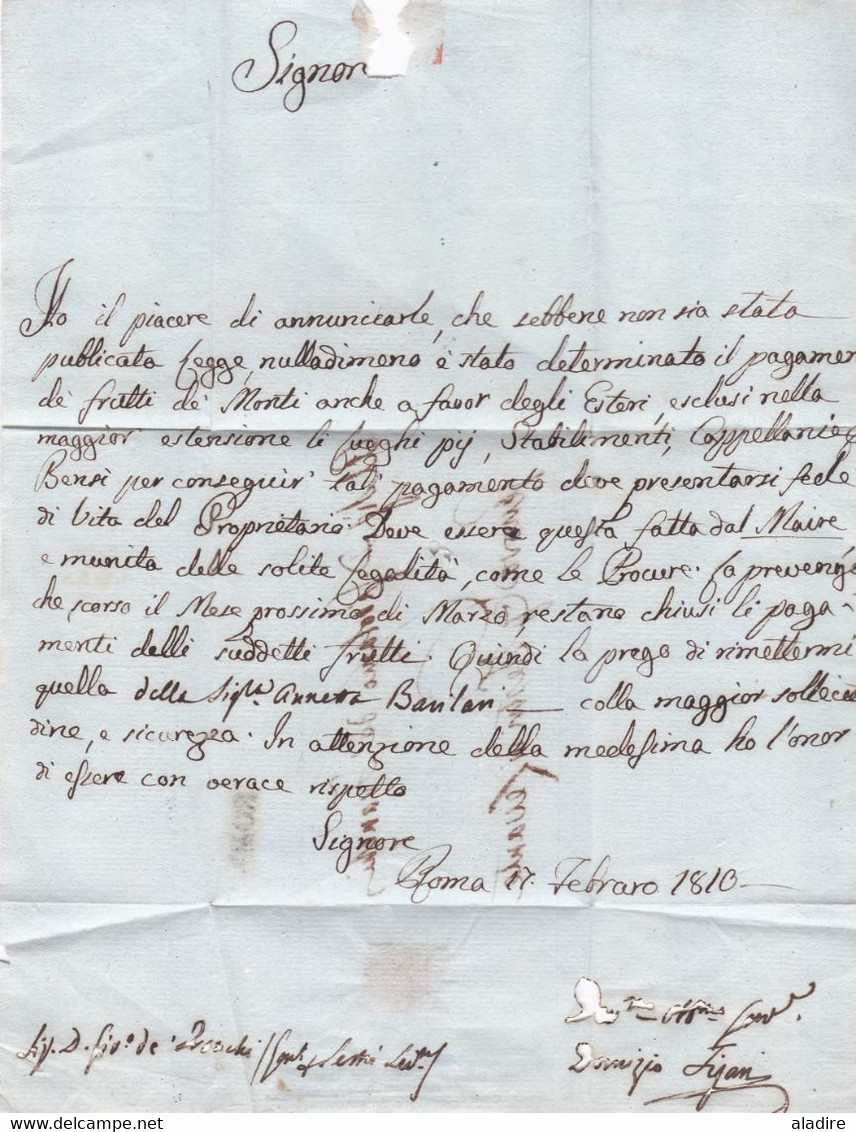 Signor
Ho il piacere di annunciarle, che sebbene non sia stata
publicata Legge, nulladimeno è stato determinato il pagamen
de frutti de Monti anche a favor degli Esteri, esclusi nella
maggior estensione li Luoghi pij, Stabilimenti, Cappellanie
Bensì per conseguir tali pagamento deve presentarsi fede
di Vita del Proprietario. Deve essere questa fatta dal Maire
e munita delle solite legalità, come le Procure. La prevengo
che scorso il Mese prossimo di Marzo, restano chiusi li paga-
menti delli suddetti frutti. Quindi la prego di rimettermi
quella della Sig.ra Annetta colla maggior sollecitu
dine, e sicurezza. In attenzione della medesima ho l'onor
di essere con verace rispetto
Signore
Roma 17. Febraro 1810
Sig. D. Gio. de'
aladire